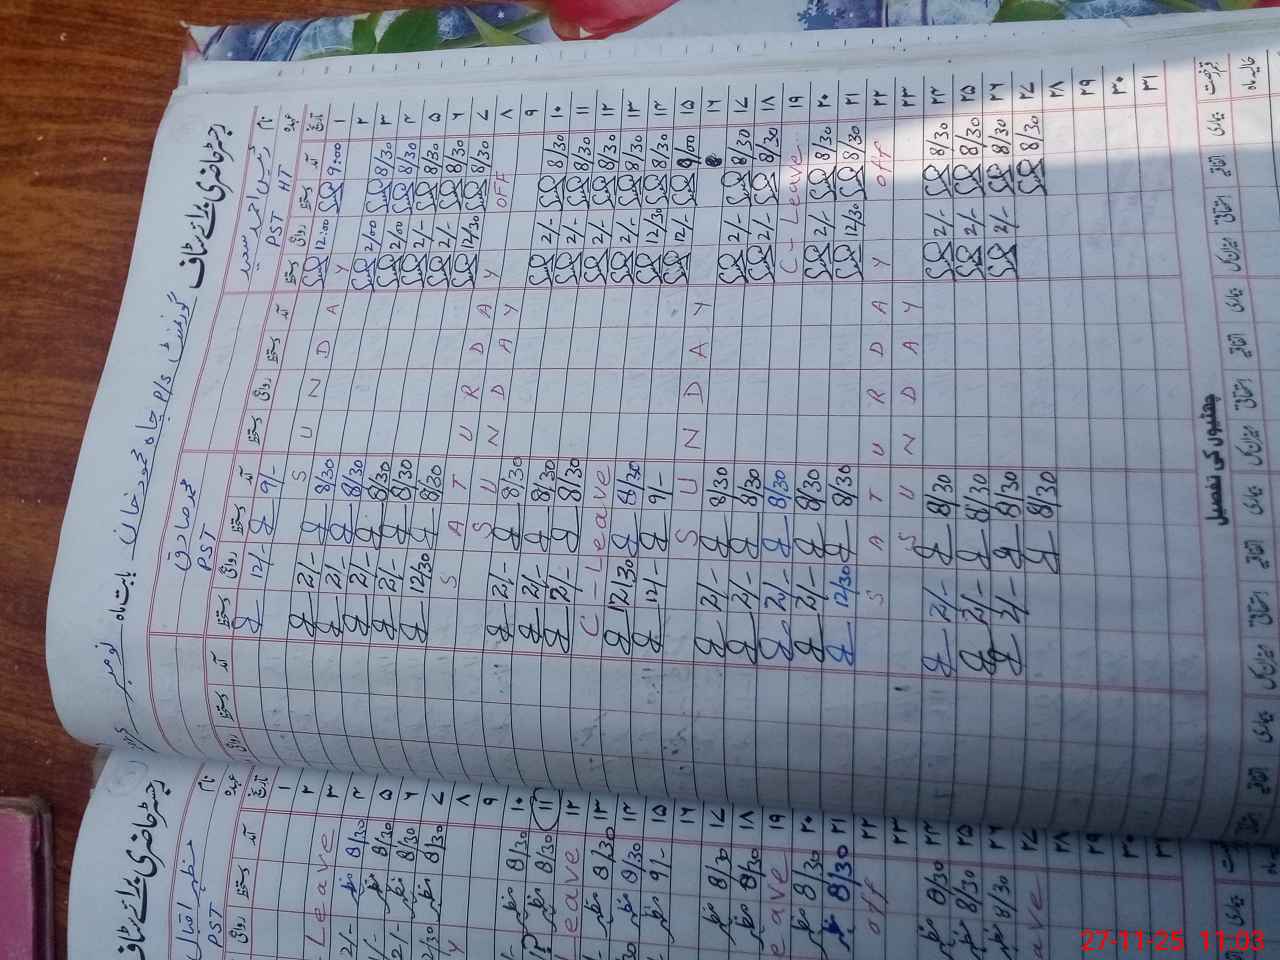 رجسٹر حاضری برائے سٹاف گورنمنٹ P/S چاہ محمود خان بابت ماہ نومبر
نام
عہدہ PST HT PST
تاریخ آمد دستخط روانگی دستخط آمد دستخط روانگی دستخط آمد دستخط روانگی دستخط آمد دستخط روانگی
۱ 9:00 12:00 9/- 12/-
۲ S U N D A Y
۳ 8/30 2/00 8/30 2/-
۴ 8/30 2/00 8/30 2/-
۵ 8/30 2/- 8/30 2/-
۶ 8/30 2/- 8/30 2/-
۷ 8/30 12/30 8/30 12/30
۸ OFF S A T U R D A Y
۹ S U N D A Y
۱۰ 8/30 2/- 8/30 2/-
۱۱ 8/30 2/- 8/30 2/-
۱۲ 8/30 2/- 8/30 2/-
۱۳ 8/30 2/- C-Leave
۱۴ 8/30 12/30 8/30 12/30
۱۵ 9/00 12/- 9/- 12/-
۱۶ S U N D A Y
۱۷ 8/30 2/- 8/30 2/-
۱۸ 8/30 2/- 8/30 2/-
۱۹ C-Leave 8/30 2/-
۲۰ 8/30 2/- 8/30 2/-
۲۱ 8/30 12/30 8/30 12/30
۲۲ OFF S A T U R D A Y
۲۳ S U N D A Y
۲۴ 8/30 2/- 8/30 2/-
۲۵ 8/30 2/- 8/30 2/-
۲۶ 8/30 2/- 8/30 2/-
۲۷ 8/30 8/30
۲۸
۲۹
۳۰
۳۱
چھٹیوں کی تفصیل
بیماری اتفاقی استحقاقی میزان کل بیماری اتفاقی استحقاقی میزان کل بیماری اتفاقی استحقاقی میزان کل بیماری اتفاقی
حالیہ ماہ
رجسٹر حاضری برائے سٹاف
نام
عہدہ PST
تاریخ آمد دستخط روانگی
۱
۲
۳ Leave
۴ 8/30 2/-
۵ 8/30
۶ 8/30 2/-
۷ 8/30 2/30
۸ Y
۹
۱۰ 8/30
۱۱ 8/30
۱۲ eave
۱۳ 8/30
۱۴ 8/30
۱۵ 9/-
۱۶
۱۷ 8/30
۱۸ 8/30
۱۹ eave
۲۰ 8/30
۲۱ 8/30
۲۲ off
۲۳
۲۴ 8/30
۲۵ 8/30
۲۶ 8/30
۲۷ ave
۲۸
۲۹
۳۰
27-11-25 11:03